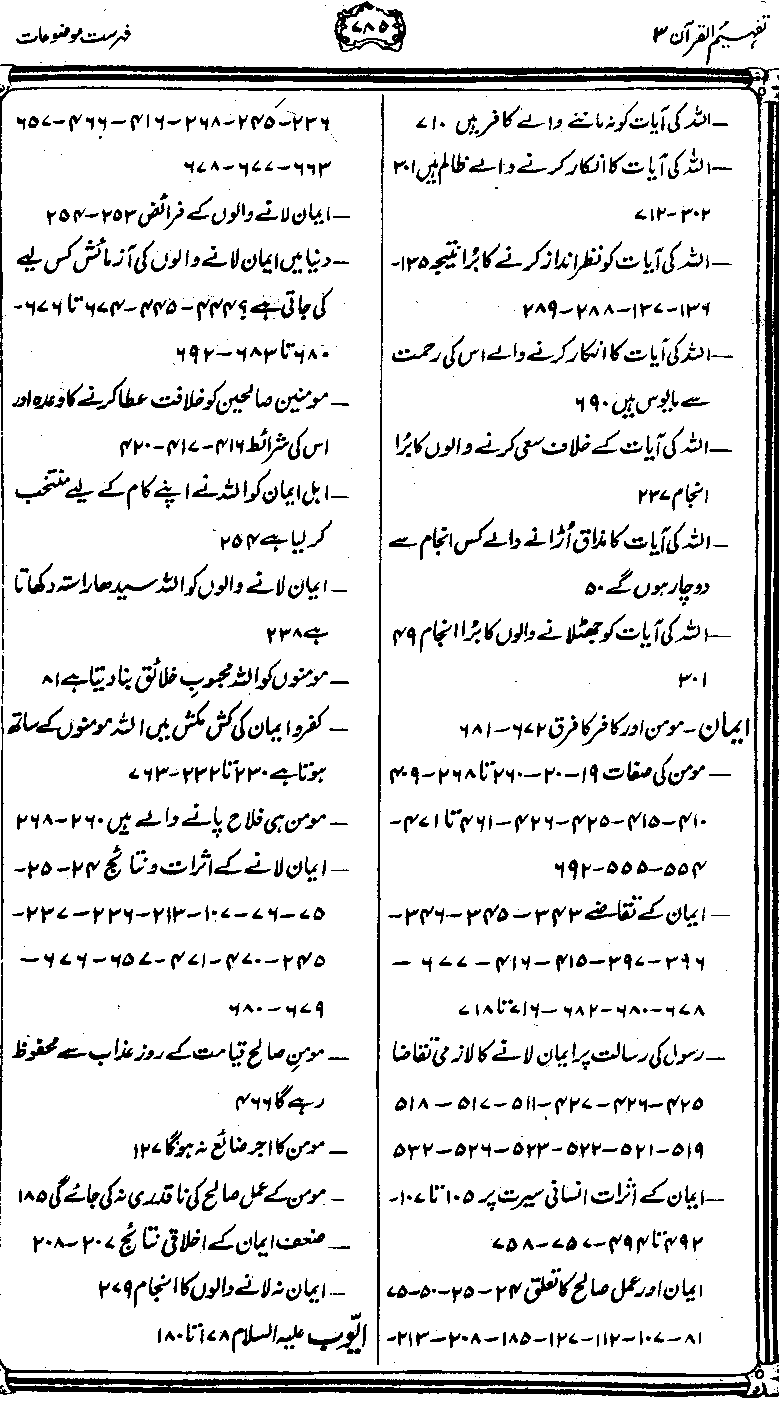 تفہیم القرآن ۳
۷۸۵
فہرست موضوعات
– اللہ کی آیات کو نہ ماننے والے کافر ہیں ۷۱۰
– اللہ کی آیات کا انکار کرنے والے ظالم ہیں ۳۰۱
۳۰۲-۷۱۲
– اللہ کی آیات کو نظر انداز کرنے کا بُرا نتیجہ ۱۳۵-
۱۳۶-۱۳۷-۲۸۸-۲۸۹
– اللہ کی آیات کا انکار کرنے والے اس کی رحمت
سے مایوس ہیں ۶۹۰
– اللہ کی آیات کے خلاف سعی کرنے والوں کا بُرا
انجام ۲۳۷
– اللہ کی آیات کا مذاق اُڑانے والے کس انجام سے
دوچار ہوں گے ۵۰
– اللہ کی آیات کو جھٹلانے والوں کا بُرا انجام ۴۹
۳۰۱
ایمان – مومن اور کافر کا فرق ۶۷۲-۶۸۱
– مومن کی صفات ۱۹-۲۰-۲۶۰ تا ۲۶۸-۴۰۹
۴۱۰-۴۱۵-۴۲۵-۴۲۶-۴۶۱ تا ۴۷۱-
۵۵۴-۵۵۵-۶۹۲
– ایمان کے تقاضے ۳۴۳-۳۴۵-۳۴۶-
۳۹۶-۳۹۷-۴۱۵-۴۱۶-۶۷۷-
۶۷۸-۶۸۰-۶۸۲-۷۱۶ تا ۷۱۸
– رسول کی رسالت پر ایمان لانے کا لازمی تقاضا
۴۲۵-۴۲۶-۴۲۷-۵۱۱-۵۱۷-۵۱۸
۵۱۹-۵۲۱-۵۲۲-۵۲۳-۵۲۶-۵۳۲
– ایمان کے اثرات انسانی سیرت پر ۱۰۵ تا ۱۰۷-
۴۹۲ تا ۴۹۴-۷۵۷-۷۵۸
ایمان اور عمل صالح کا تعلق ۲۴-۲۵-۵۰-۷۵
۸۱-۱۰۷-۱۱۲-۱۲۷-۱۸۵-۲۰۸-۲۱۳-
۲۳۶-۲۴۵-۲۶۸-۴۱۶-۴۶۶-۶۵۷
۶۶۳-۶۷۷-۶۷۸
– ایمان لانے والوں کے فرائض ۲۵۳-۲۵۴
– دنیا میں ایمان لانے والوں کی آزمائش کس لیے
کی جاتی ہے؟ ۴۴۴-۴۴۵-۶۷۴ تا ۶۷۶-
۶۸۰ تا ۶۸۳-۶۹۲
– مومنین صالحین کو خلافت عطا کرنے کا وعدہ اور
اس کی شرائط ۴۱۶-۴۱۷-۴۲۰
– اہل ایمان کو اللہ نے اپنے کام کے لیے منتخب
کر لیا ہے ۲۵۴
– ایمان لانے والوں کو اللہ سیدھا راستہ دکھاتا
ہے ۲۳۸
– مومنوں کو اللہ محبوبِ خلائق بنا دیتا ہے ۸۱
– کفر و ایمان کی کش مکش میں اللہ مومنوں کے ساتھ
ہوتا ہے ۲۳۰ تا ۲۳۲-۷۶۳
– مومن ہی فلاح پانے والے ہیں ۲۶۰-۲۶۸
– ایمان لانے کے اثرات و نتائج ۲۴-۲۵-
۷۵-۷۶-۱۰۷-۲۱۳-۲۳۶-۲۳۷-
۲۴۵-۴۷۰-۴۷۱-۶۵۷-۶۷۶-
۶۷۹-۶۸۰
– مومنِ صالح قیامت کے روز عذاب سے محفوظ
رہے گا ۴۶۶
– مومن کا اجر ضائع نہ ہوگا ۱۲۷
– مومن کے عمل صالح کی ناقدری نہ کی جائے گی ۱۸۵
– ضعف ایمان کے اخلاقی نتائج ۲۰۷-۲۰۸
– ایمان نہ لانے والوں کا انجام ۲۷۹
ایّوب علیہ السلام ۱۷۸ تا ۱۸۰